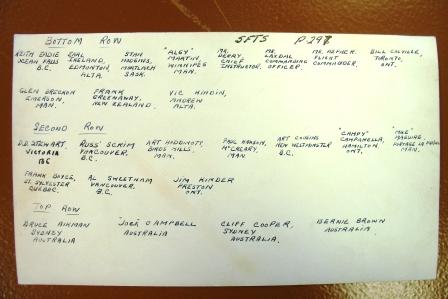 BOTTOM ROW SFTS P297
KEITH EADIE EARL STAN "ALGY" MR. MR. MR. HEFHER. BILL COLVILLE,
OCEAN FALLS IRELAND, HUGGINS, MARTIN, BERRY LAXDAL FLIGHT TORONTO,
B.C. EDMONTON, MATLACH WINNIPEG CHIEF COMMANDING COMMANDER ONT.
ALTA. SASK. MAN. INSTRUCTOR. OFFICER.
GLEN BRECKON FRANK VIC KINDIN,
EMERSON, GREENAWAY, ANDREW
MAN. NEW ZEALAND. ALTA
SECOND ROW
D.D. STEWART, "RUSS" SCRIM ART HODDINOTT, PAUL HANSON, ART COUSINS "CAMPY" "MIKE"
VICTORIA VANCOUVER, BIRDS HILL, McCREARY, NEW WESTMINSTER CAMPANELLA, MAGUIRE,
BC B.C. MAN. MAN. B.C. HAMILTON, PORTAGE LA PRAIRIE
ONT. MAN.
FRANK BOYCE, AL SWEETNAM JIM KINDER
ST. SYLVESTER VANCOUVER, PRESTON
QUEBEC. B.C. ONT.
TOP ROW
BRUCE AIKMAN "JOCK" CAMPBELL CLIFF COOPER, BERNIE BROWN
SYDNEY AUSTRALIA SYDNEY AUSTRALIA
AUSTRALIA AUSTRALIA.